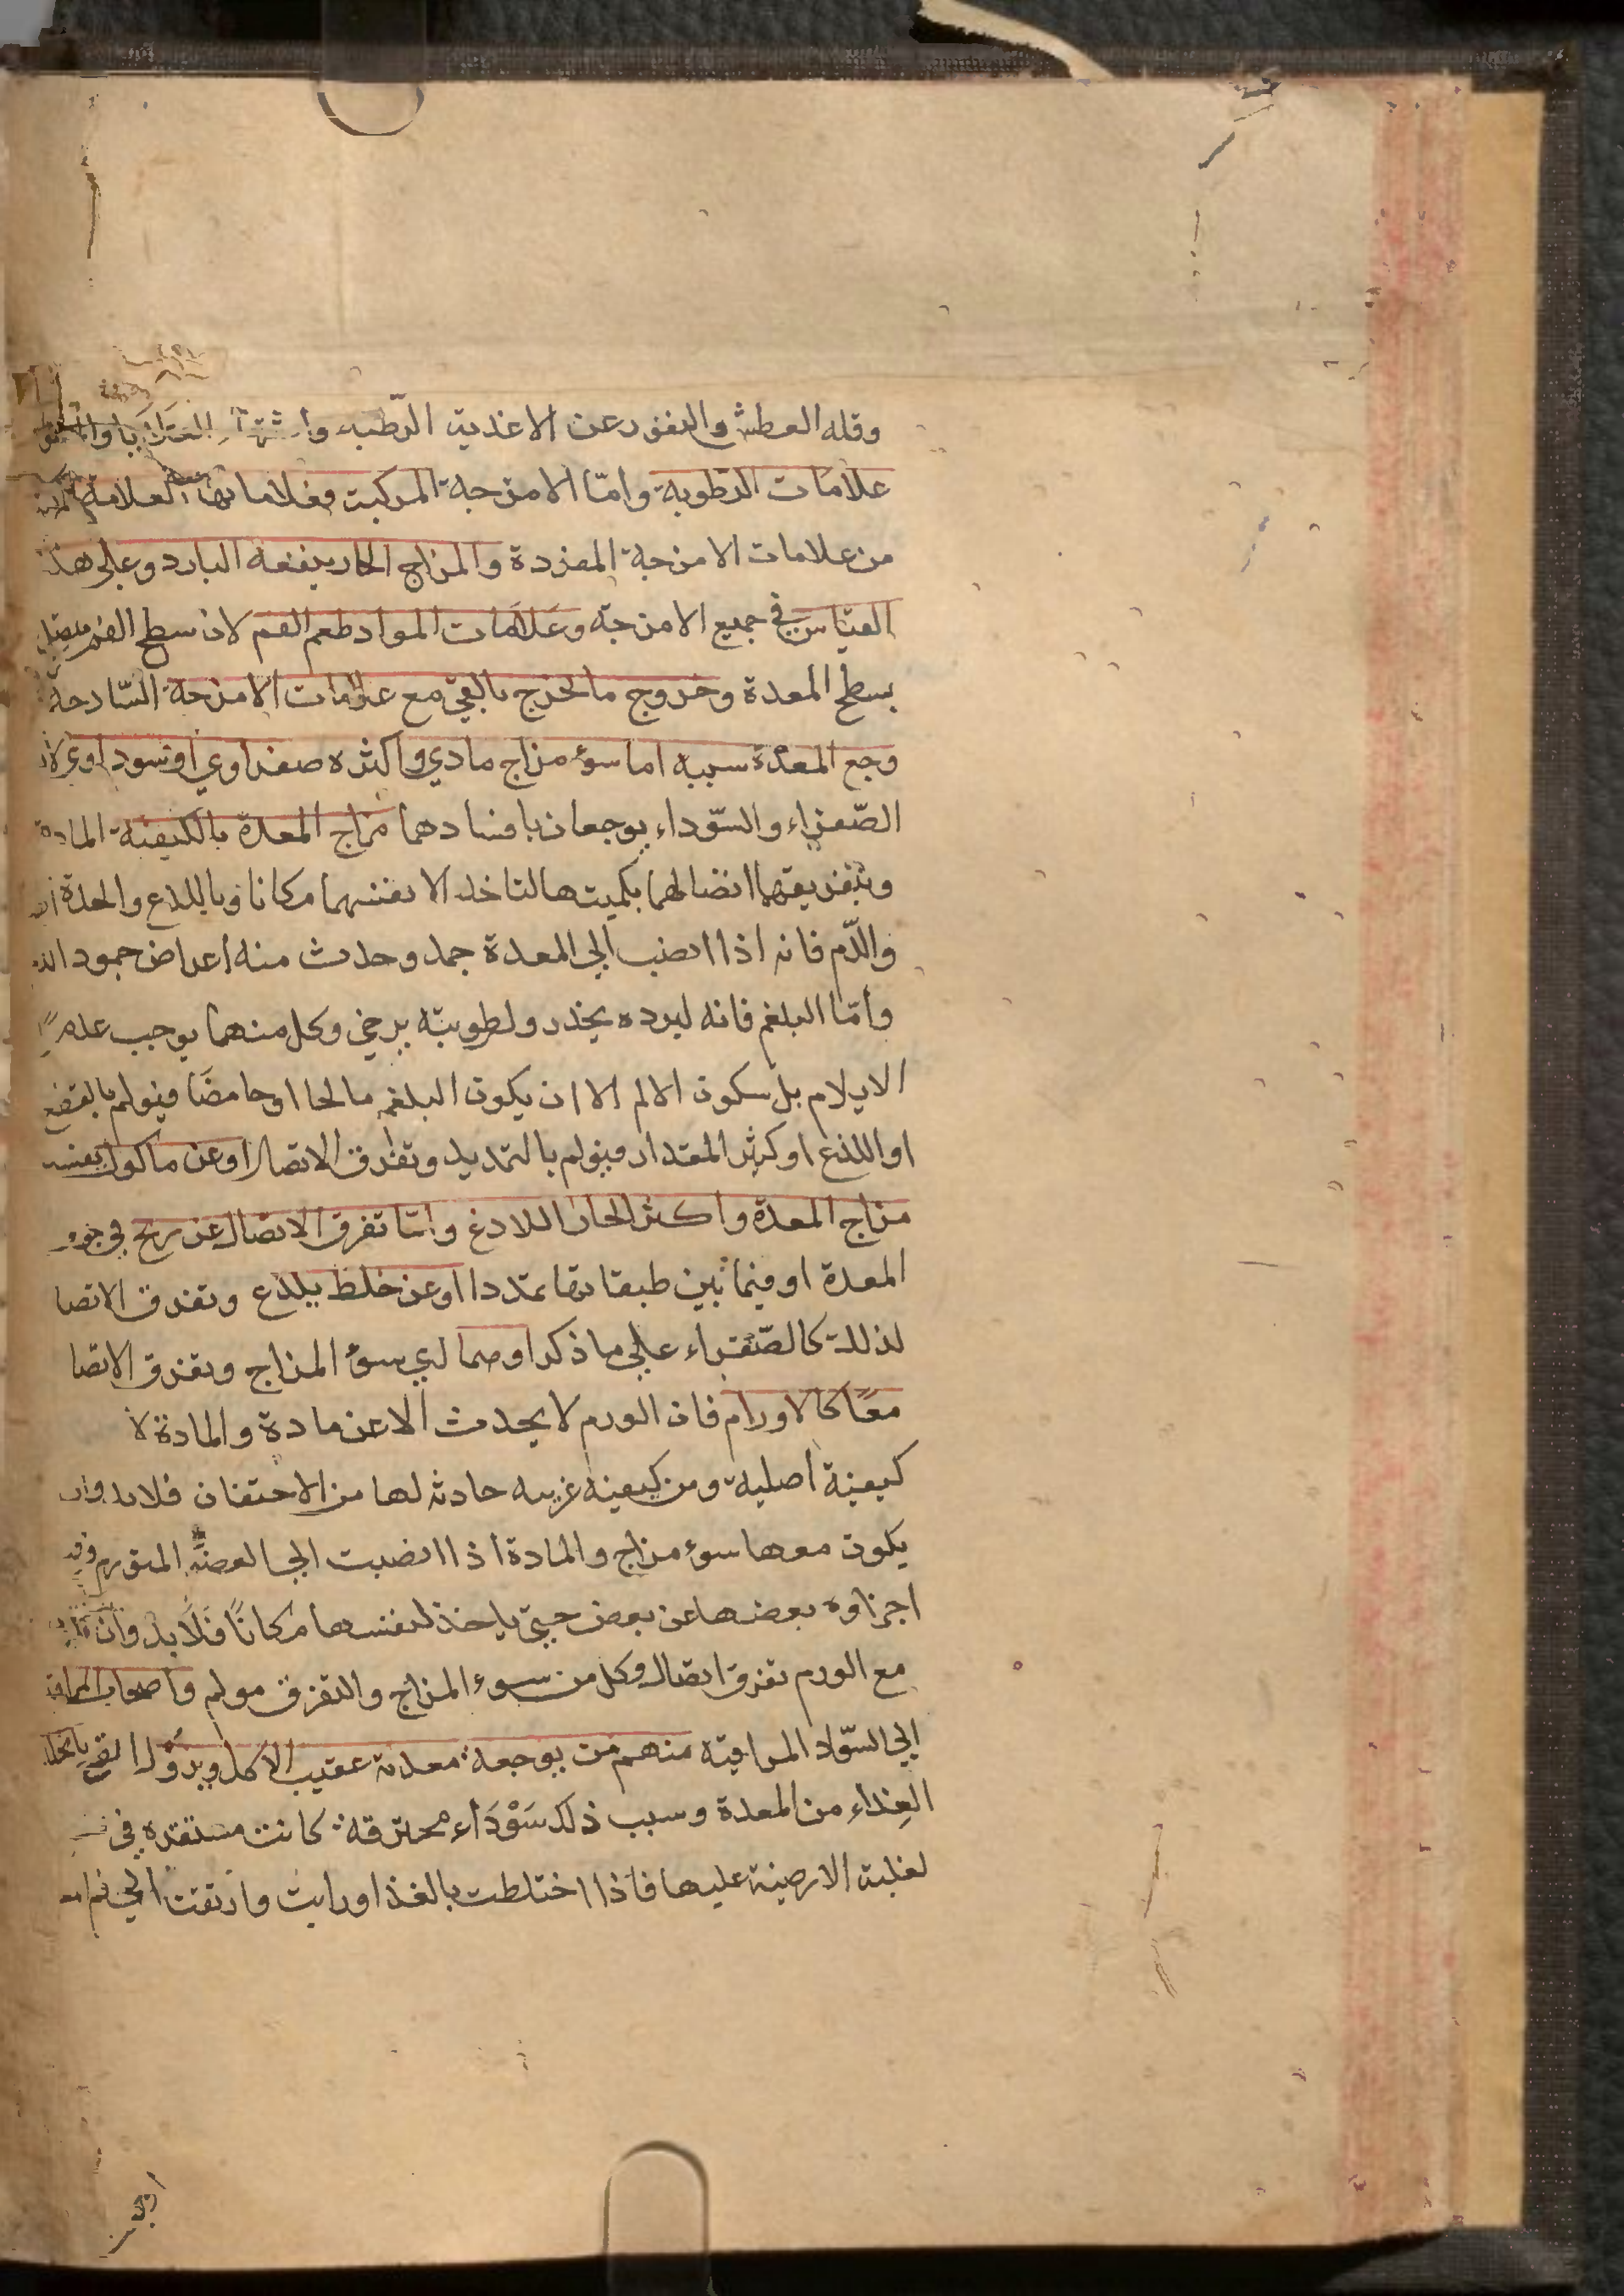 وقله العطش والنفور عن الاغذية الرطبه واشتها
علامات الرطوبة وامّا الامزجة المركبة فعلاماتها العلامة
من علامات الامزجة المفردة والمزاج الحار ينفعه البارد وعلي هذ
القياس في جميع الامزجة وعلامات المواد طعم الفم لان سطح الفم متصل
بسطح المعدة وخروج ما يخرج بالقي مع علامات الامزجة السّادجة
وجع المعدة سببه اما سوء مزاج مادي واكثره صفراوي او سوداوي لان
الصّفراء والسّوداء يوجعان بافسادهما مزاج المعدة بالكيفية المادة
وبتفريقهما اتصالها بكميتها لتاخد لانفسهما مكانا وباللدع والحدة
والدّم فانه اذا انصب الي المعدة جمد وحدث منه اعراض جمود الد
وأمّا البلغم فانه لبرده يخدر ولطوبته يرخي وكل منهما يوجب عدم
الايلام بل سكون الالم الا ان يكون البلغم مالحا او حامضا فيولم بالتقطع
او اللذع او كثير المقدار فيولم بالتمديد وتفرق الاتصال او عن ماكول يفسد
مزاج المعدة واكثر الحار اللادغ وامّا تفرق الاتصال عن ريح في جوف
المعدة او فيما بين طبقاتها تمددا او عن خلط يلذع وتفرق الاتصا
لذلك كالصّفراء علي ما ذكر او صما لي سوء المزاج وتفرق الاتصا
معًا كالاورام فان الورم لا يحدث الا عن مادة والمادة لا
كيفية اصلية ومن كيفية غريبه حادثه لها من الاحتقان فلابد وان
يكون معها سوء مزاج والمادة اذا انصبت الي العضو المتورم
اجزاوه بعضها عن بعض حتي ياخذ لنفسها مكانًا فلا بد وان
مع الورم تفرق اتصال وكل من سوء المزاج والتفرق مولم واصحاب المراقية
الي السّواد المراقية منهم من يوجعه معدته عقيب الاكل ويزول
الغذاء من المعدة وسبب ذلك سَوْدَاء محترقة كانت مستقره في
لغلبة الارضية عليها فاذا اختلطت بالغذا وربت وارتقت الي فم